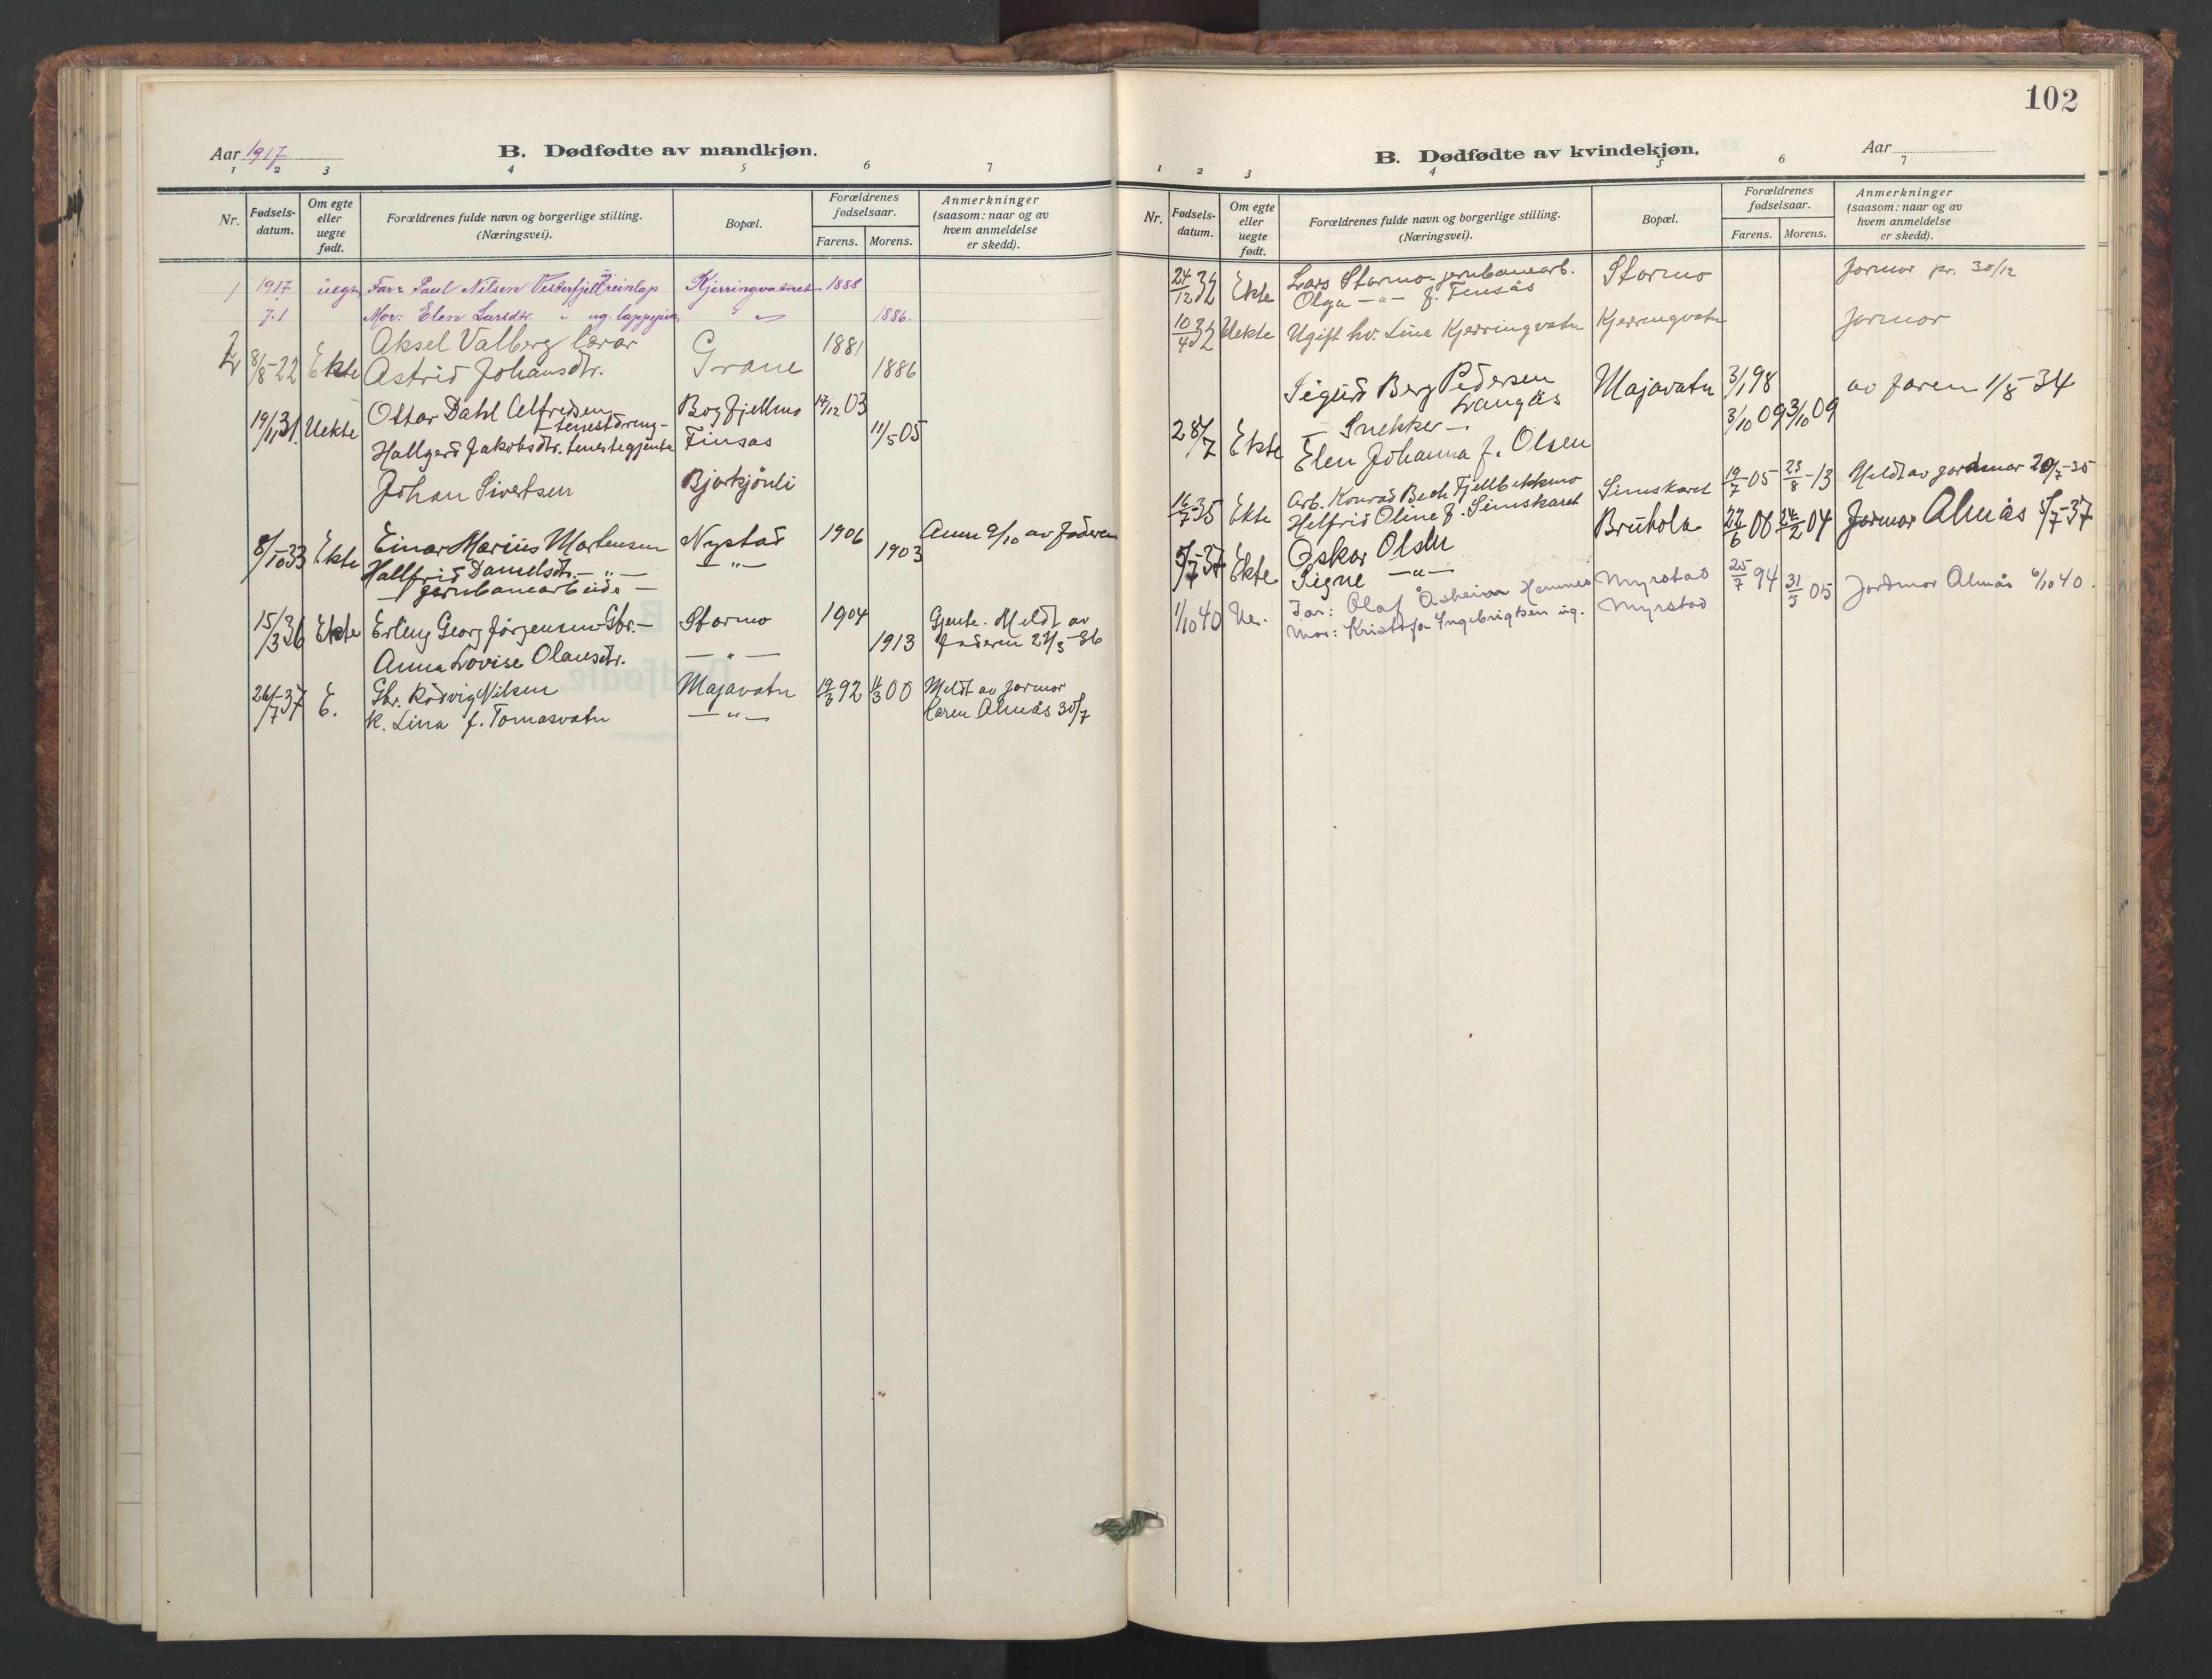 Aar 1917
B. Dødfødte av mandkjøn.
1 2 3 4 5 6 7
Nr. Fødsels-datum. Om egte eller uegte født. Forældrenes fulde navn og borgerlige stilling. (Næringsvei). Bopæl. Forældrenes fødselsaar. Farens. Morens. Anmerkninger (saasom: naar og av hvem anmeldelse er skedd).
1 1917 uegte Far: Paul Nilsen Vesterfjell ug reinlap Kjerringvatnet 1888
7.1 Mor: Elen Larsdtr. " ug. lappepike " " 1886.
Aksel Valberg lærar 1881
2 8/8-22 Ekte Astrid Johansdtr. Grane 1886
Ottar Dahl Alfredsen Bogfjellmo 17/12 03
19/1 31. Uekte - tenestdreng -
Hallgerd Jakobsdtr. tenestegjenta Finsås 11/5 05
Johan Sivertsen Bjorkjönli
Einar Marius Mortensen Nystad 1906 Anm 9/10 av faderen
8/10-33 Ekte Hallfrid Danielsdtr. — " — — " — 1903
— jernbanearbeide —
15/3 36 Ekte Erling Georg Jørgensen - Gbr. - Stormo 1904 Gjente. Meldt av
Anna Lovise Olausdtr. — " — 1913 faderen 27/3-36
26/7-37 E. Gbr. Rödvig Nilsen Majavatn 19/3 92 11/3 00 Meldt av jormor
K. Lina f. Tomasvatn — " — Karen Almås 30/7
102
B. Dødfødte av kvindekjøn.
Aar
1 2 3 4 5 6 7
Nr. Fødsels-datum. Om egte eller uegte født. Forældrenes fulde navn og borgerlige stilling. (Næringsvei). Bopæl. Forældrenes fødselsaar. Farens. Morens. Anmerkninger (saasom: naar og av hvem anmeldelse er skedd).
24/12 32 Ekte Lars Stormo - jernbanearb. Stormo Jormor pr. 30/12
Olga — " — f. Finsås
10/4 32 Uekte Ugift kv. Lina Kjerringvatn Kjerringvatn Jormor
Sigurd Berg Pedersen Majavatn 3/1 98 av faren 1/8-34
Langås
— Snekker — 3/10 09 3/10 09
28/7 Ekte Elen Johanna f. Olsen
16/7 35 Ekte Arb. Konrad Bech Fjellbekkmo Simskaret 19/7 05 23/8-13 Meldt av jordmor 20/7-35
Helfrid Oline f. Simskaret
5/7-37 Ekte Oskar Olsen Bruhola 22/6 06 24/2 04 Jormor Almås 5/7-37
Signe — " —
1/10 40 Ue. Far: Olaf Åsheim Hamnes Myrstad 25/7 94 31/5 05 Jordmor Almås 6/10 40.
Mor: Kristofa Ingebrigtsen ug. Myrstad